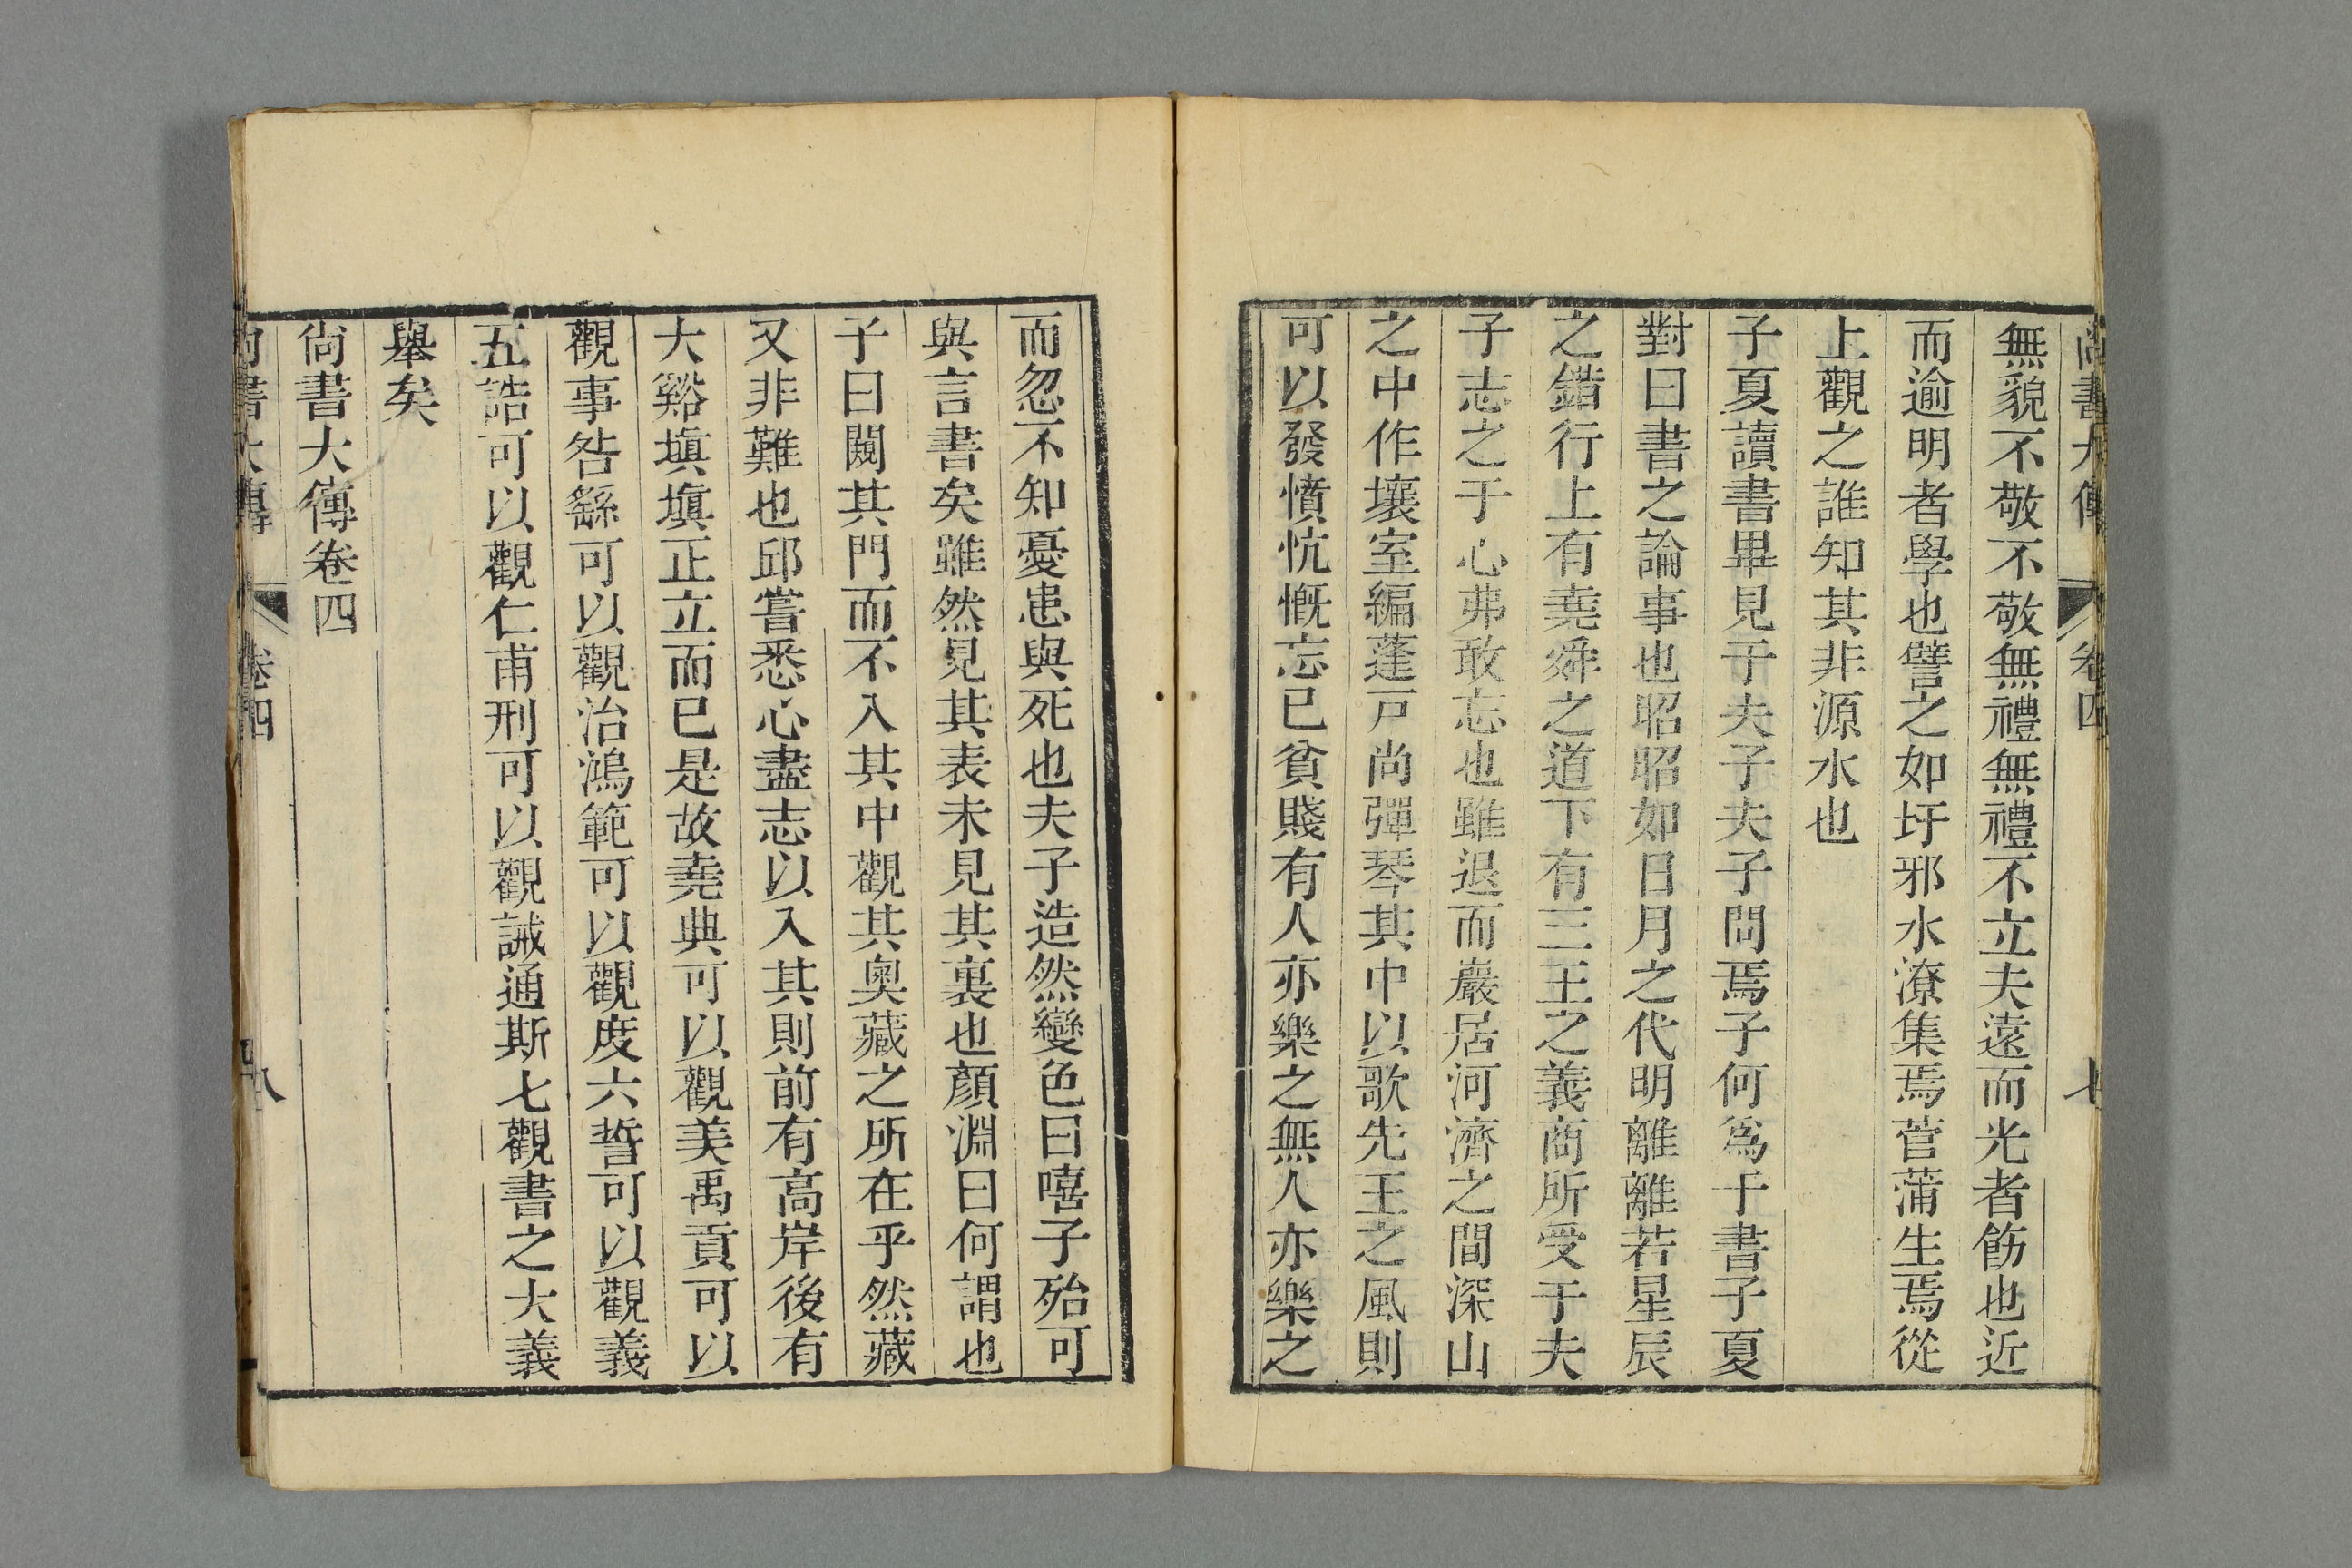 尚書大傳 卷四 七
無貌不敬不敬無禮無禮不立夫遠而光者飭也近
而逾明者學也譬之如圩邪水潦集焉菅蒲生焉從
上觀之誰知其非源水也
子夏讀書畢見于夫子夫子問焉子何爲于書子夏
對曰書之論事也昭昭如日月之代明離離若星辰
之錯行上有堯舜之道下有三王之義商所受于夫
子志之于心弗敢忘也雖退而巖居河濟之間深山
之中作壤室編蓬戸尚彈琴其中以歌先王之風則
可以發憤忼慨忘己貧賤有人亦樂之無人亦樂之
而忽不知憂患與死也夫子造然變色曰嘻子殆可
與言書矣雖然見其表未見其裏也顏淵曰何謂也
子曰闚其門而不入其中觀其奧藏之所在乎然藏
又非難也邱嘗悉心盡志以入其則前有高岸後有
大谿塡塡正立而已是故堯典可以觀美禹貢可以
觀事咎繇可以觀治鴻範可以觀度六誓可以觀義
五誥可以觀仁甫刑可以觀誡通斯七觀書之大義
舉矣
尙書大傳卷四
尚書大傳 卷四 八